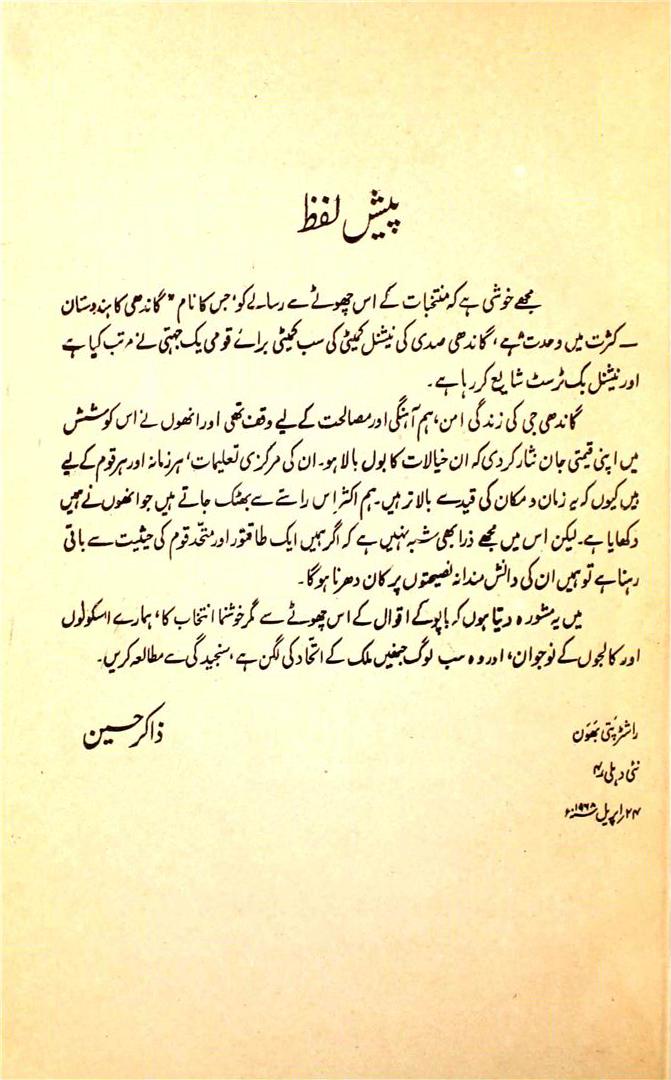 پیش لفظ
مجھے خوشی ہے کہ منتخبات کے اس چھوٹے سے رسالے کو، جس کا نام "گاندھی کا ہندوستان
— کثرت میں وحدت" ہے، گاندھی صدی کی نیشنل کمیٹی کی سب کمیٹی برائے قومی یک جہتی نے مرتب کیا ہے
اور نیشنل بک ٹرسٹ شایع کر رہا ہے۔
گاندھی جی کی زندگی امن، ہم آہنگی اور مصالحت کے لیے وقف تھی اور انھوں نے اس کوشش
میں اپنی قیمتی جان نثار کر دی کہ ان خیالات کا بول بالا ہو۔ ان کی مرکزی تعلیمات، ہر زمانہ اور ہر قوم کے لیے
ہیں کیوں کہ یہ زمان و مکان کی قید سے بالاتر ہیں۔ ہم اکثر اس راستے سے بھٹک جاتے ہیں جو انھوں نے ہمیں
دکھایا ہے۔ لیکن اس میں مجھے ذرا بھی شبہ نہیں ہے کہ اگر ہمیں ایک طاقتور اور متحّد قوم کی حیثیت سے باقی
رہنا ہے تو ہمیں ان کی دانش مندانہ نصیحتوں پر کان دھرنا ہوگا۔
میں یہ مشورہ دیتا ہوں کہ باپو کے اقوال کے اس چھوٹے سے مگر خوشنما انتخاب کا، ہمارے اسکولوں
اور کالجوں کے نوجوان، اور وہ سب لوگ جنھیں ملک کے اتّحاد کی لگن ہے، سنجیدگی سے مطالعہ کریں۔
ذاکر حسین
راشٹرپتی بَھوَن
نئی دہلی ۴
۲۴؍اپریل ۱۹۶۸ء